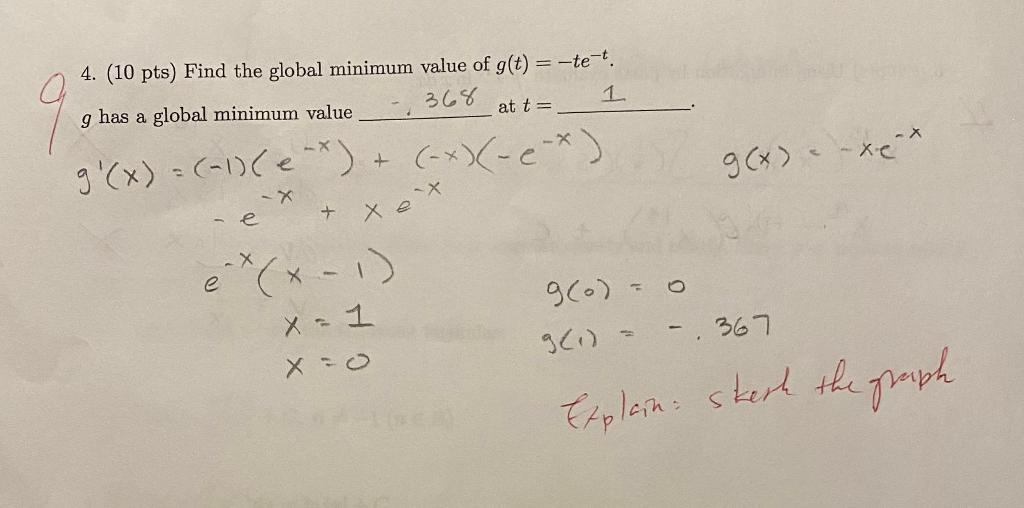 9
4. (10 pts) Find the global minimum value of g(t) = −te⁻ᵗ.
g has a global minimum value -.368 at t = 1.
g'(x) = (-1)(e^-x) + (-x)(-e^-x)
g(x) = -xe^-x
-e^-x + xe^-x
e^-x(x-1)
x = 1
x = 0
g(0) = 0
g(1) = -.367
Explain: skesh the graph